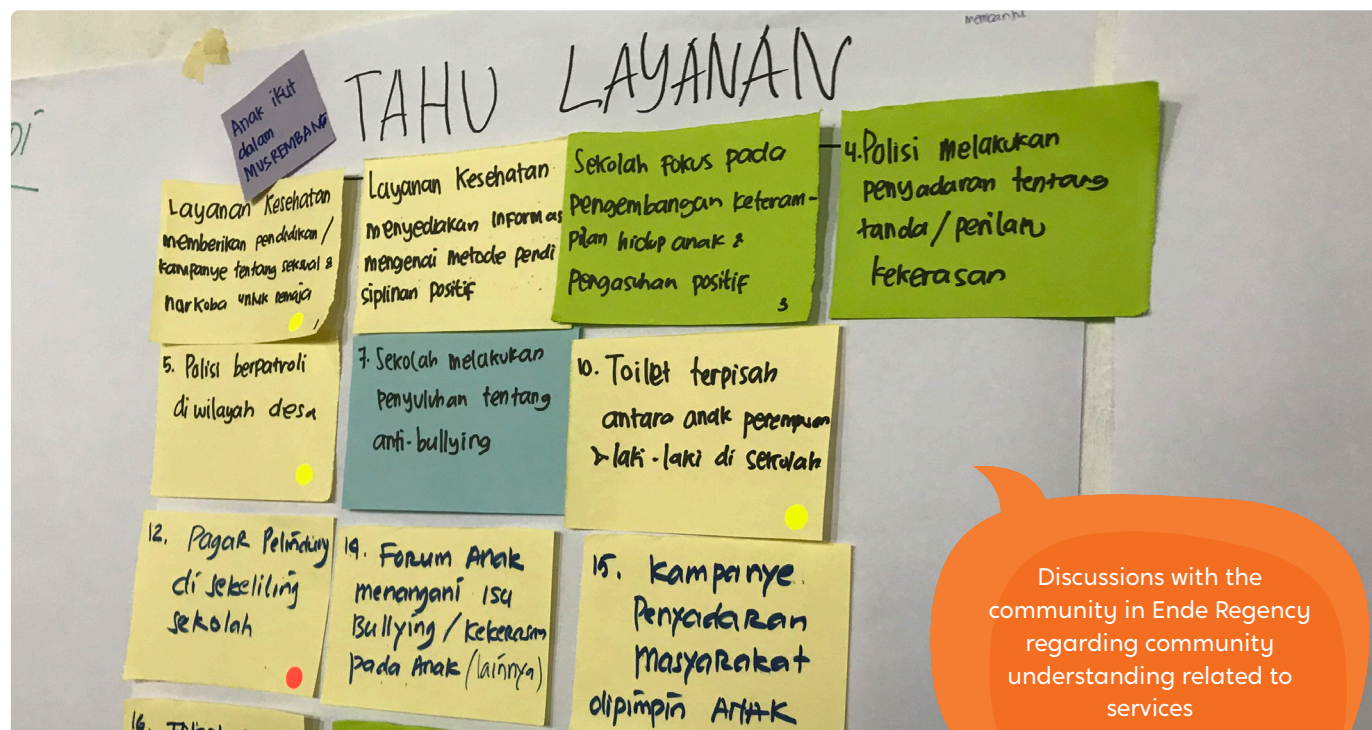 memban
TAHU LAYANAN
Anak ikut
dalam
MUSREMBANG
Layanan Kesehatan
memberikan pendidikan /
kampanye tentang seksual &
narkoba untuk remaja
1
Layanan Kesehatan
menyediakan informas
mengenai metode pendi
siplinan positif
Sekolah Fokus pada
pengembangan keteram-
pilan hidup anak &
Pengasuhan positif
3
4. Polisi melakukan
penyadaran tentang
tanda / perilaku
kekerasan
5. Polisi berpatroli
di wilayah desa
7. Sekolah melakukan
penyuluhan tentang
anti-bullying
10. Toilet terpisah
antara anak perempuan
& laki-laki di sekolah
12. Pagar Pelindung
di sekeliling
sekolah
14. Forum Anak
menangani isu
Bullying / Kekerasan
pada Anak (lainnya)
15. Kampanye
Penyadaran
Masyarakat
dipimpin ANAK
16.
Discussions with the
community in Ende Regency
regarding community
understanding related to
services